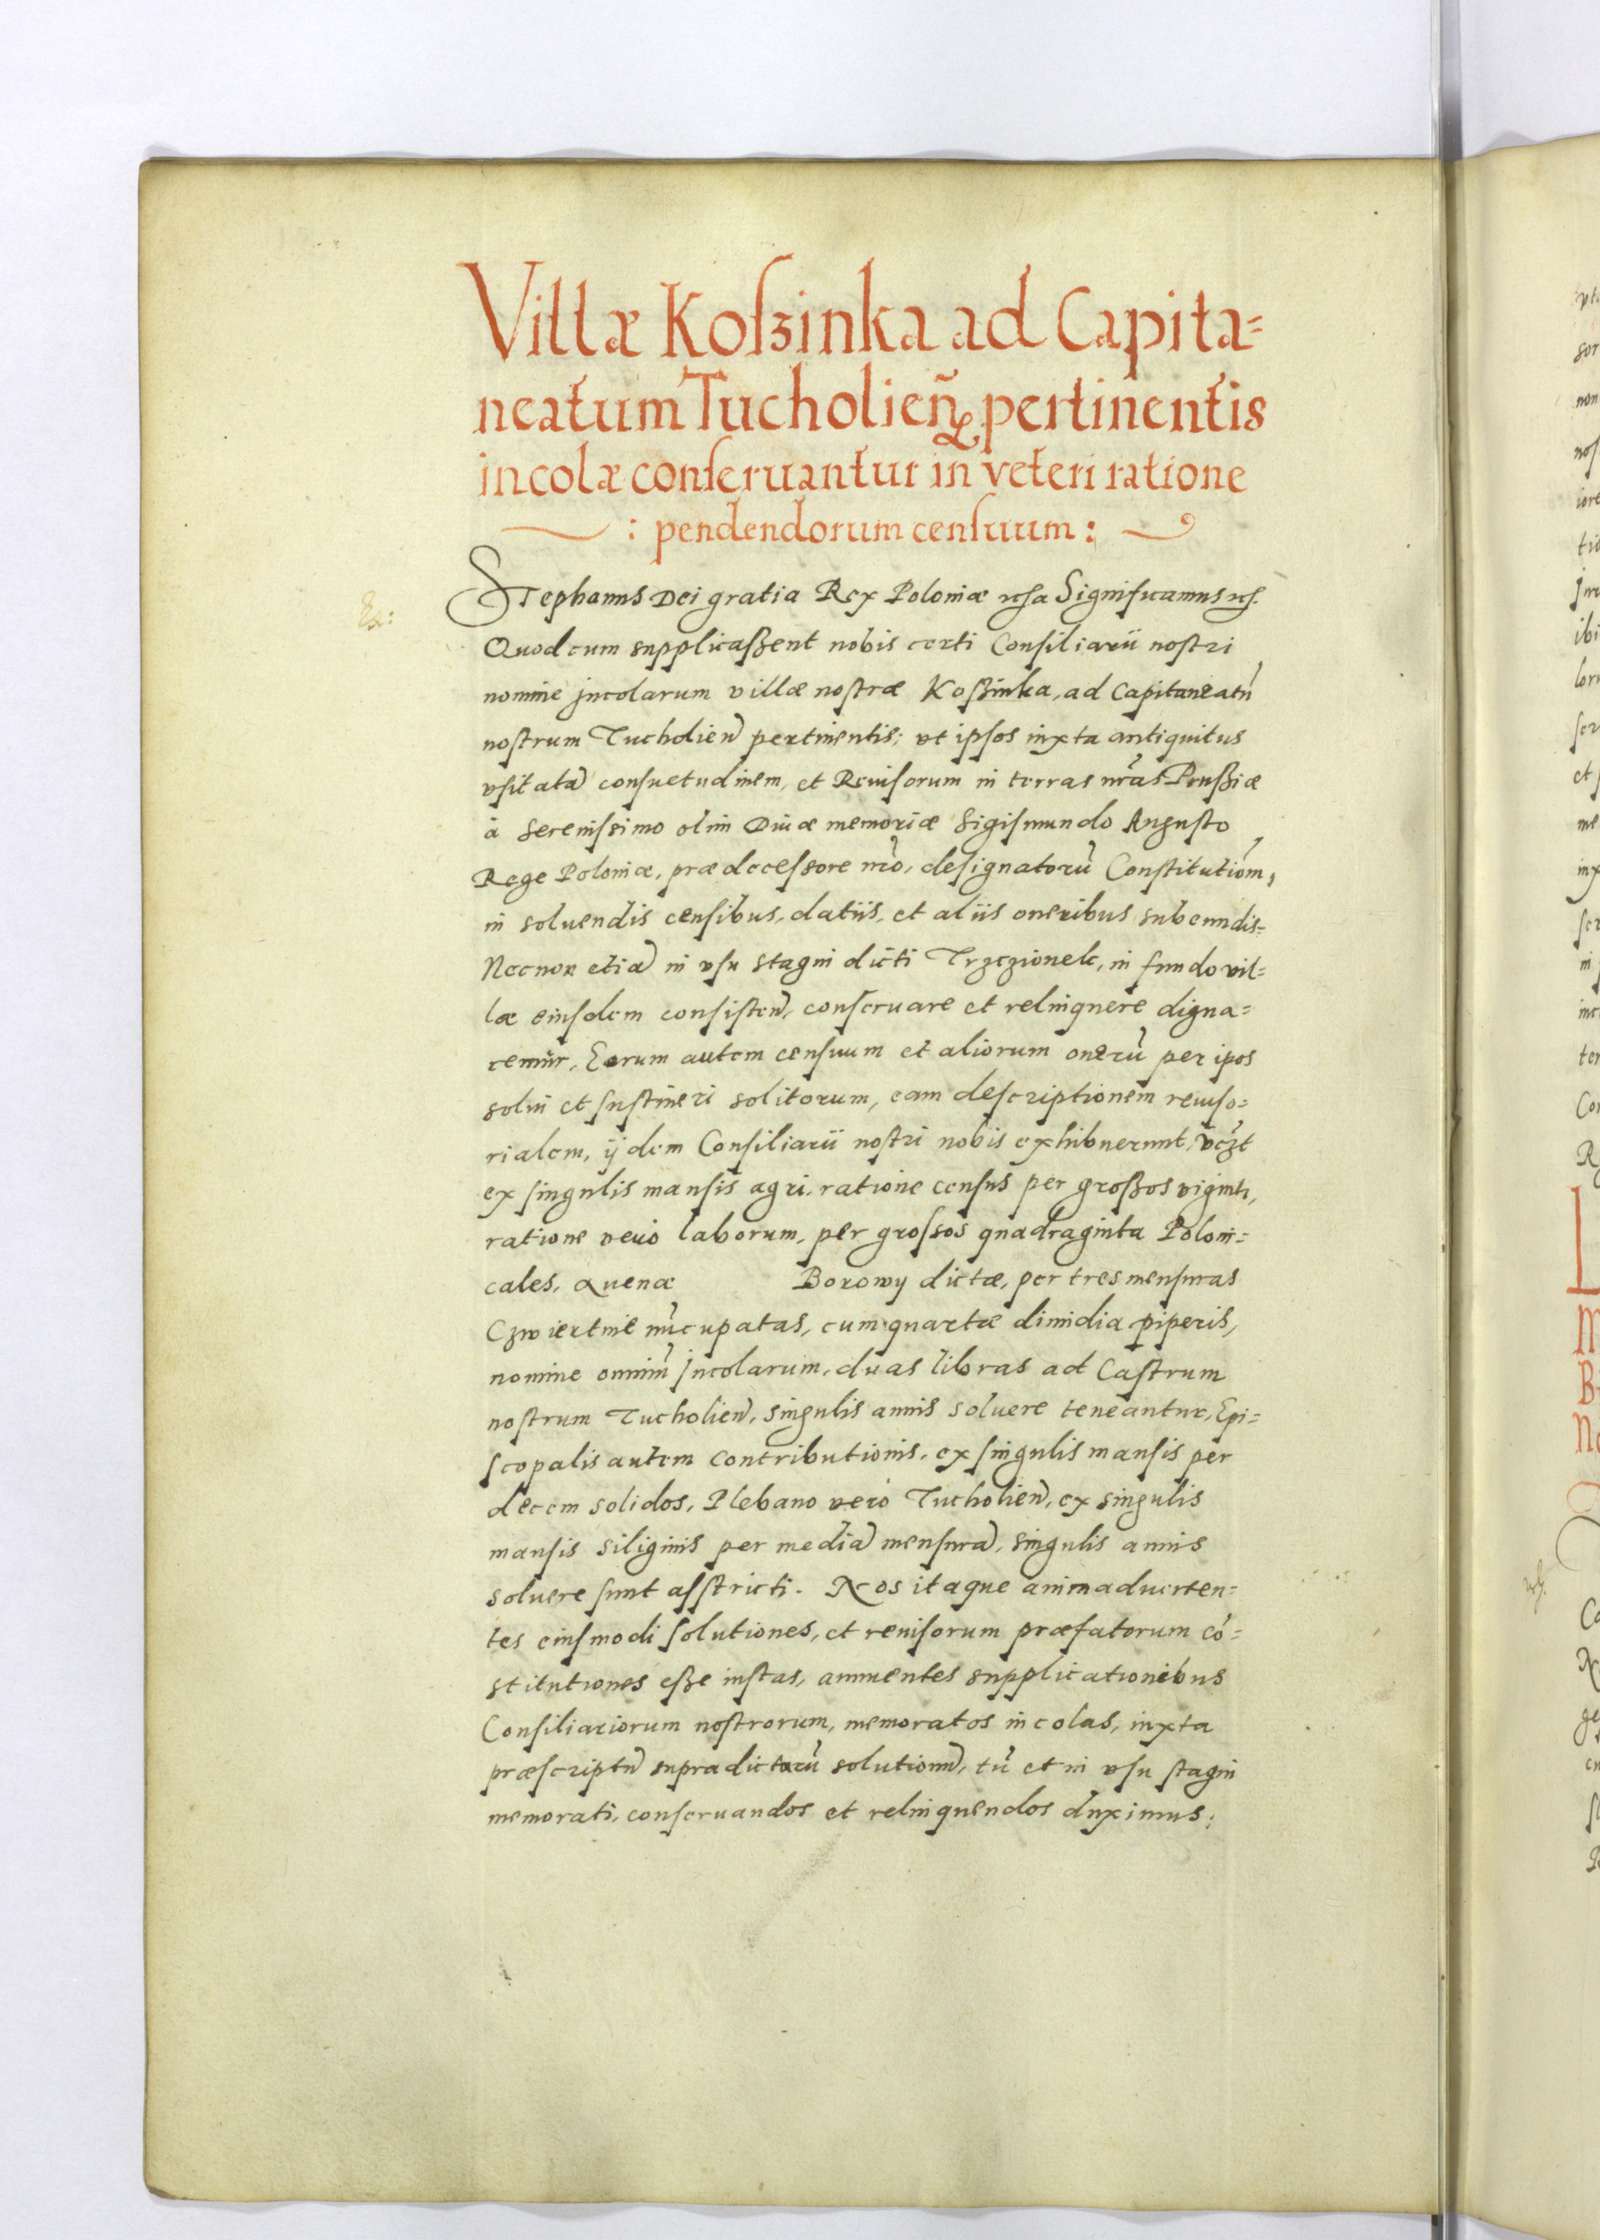 Villæ Koßinka ad Capita=
neatum Tucholieñ pertinentis
incolæ conseruantur in veteri ratione
: pendendorum censuum :
Ex:
Stephanus Dei gratia Rex Poloniæ Significamus
Quod cum supplicaßent nobis certi Consiliarii nostri
nomine jncolarum villæ nostræ Koßinka, ad Capitaneatũ
nostrum Tucholieñ pertinentis; vt ipsos iuxta antiquitus
vsitatã consuetudinem, et Reuisorum in terras nr̃as Prußiæ
à Serenissimo olim Diuæ memoriæ Sigismundo Augusto
Rege Poloniæ, prædecessore nr̃o, designatorũ Constitutiom̃,
in soluendis censibus, datiis, et aliis oneribus subeundis=
Necnon etiã in vsu stagni dicti Trzczionek, in fundo vil=
læ eiusdem consisteñ, conseruare et relinquere digna=
remur, Eorum autem censuum et aliorum onerũ per ipos
solui et sustineri solitorum, eam descriptionem reuiso=
rialem, ijdem Consiliarii nostri nobis exhibuerunt, vc̃zt
ex singulis mansis agri, ratione census per großos viginti,
ratione verò laborum, per grossos quadraginta Poloni=
cales, Auenæ Borowy dictæ, per tres mensuras
Czwiertnie nũcupatas, cum quartæ dimidia piperis,
nomine omniũ jncolarum, duas libras ad Castrum
nostrum Tucholieñ, singulis annis soluere teneantur, Epi=
scopalis autem contributionis, ex singulis mansis per
decem solidos, Plebano verò Tucholieñ, ex singulis
mansis siliginis per mediã mensurã, singulis annis
soluere sunt asstricti. Nos itaque animaduerten=
tes eiusmodi solutiones, et reuisorum præfatorum cõ=
stitutiones eße iustas, annuentes supplicationibus
Consiliariorum nostrorum, memoratos incolas, iuxta
præscriptũ supradictarũ solutionũ, tũ et in vsu stagni
memorati, conseruandos et relinquendos duximus;